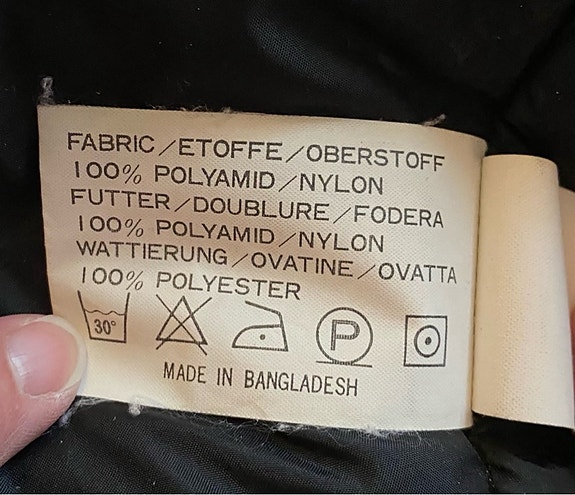 FABRIC/ETOFFE/OBERSTOFF
100% POLYAMID/NYLON
FUTTER/DOUBLURE/FODERA
100% POLYAMID/NYLON
WATTIERUNG/OVATINE/OVATTA
100% POLYESTER
30° P
MADE IN BANGLADESH